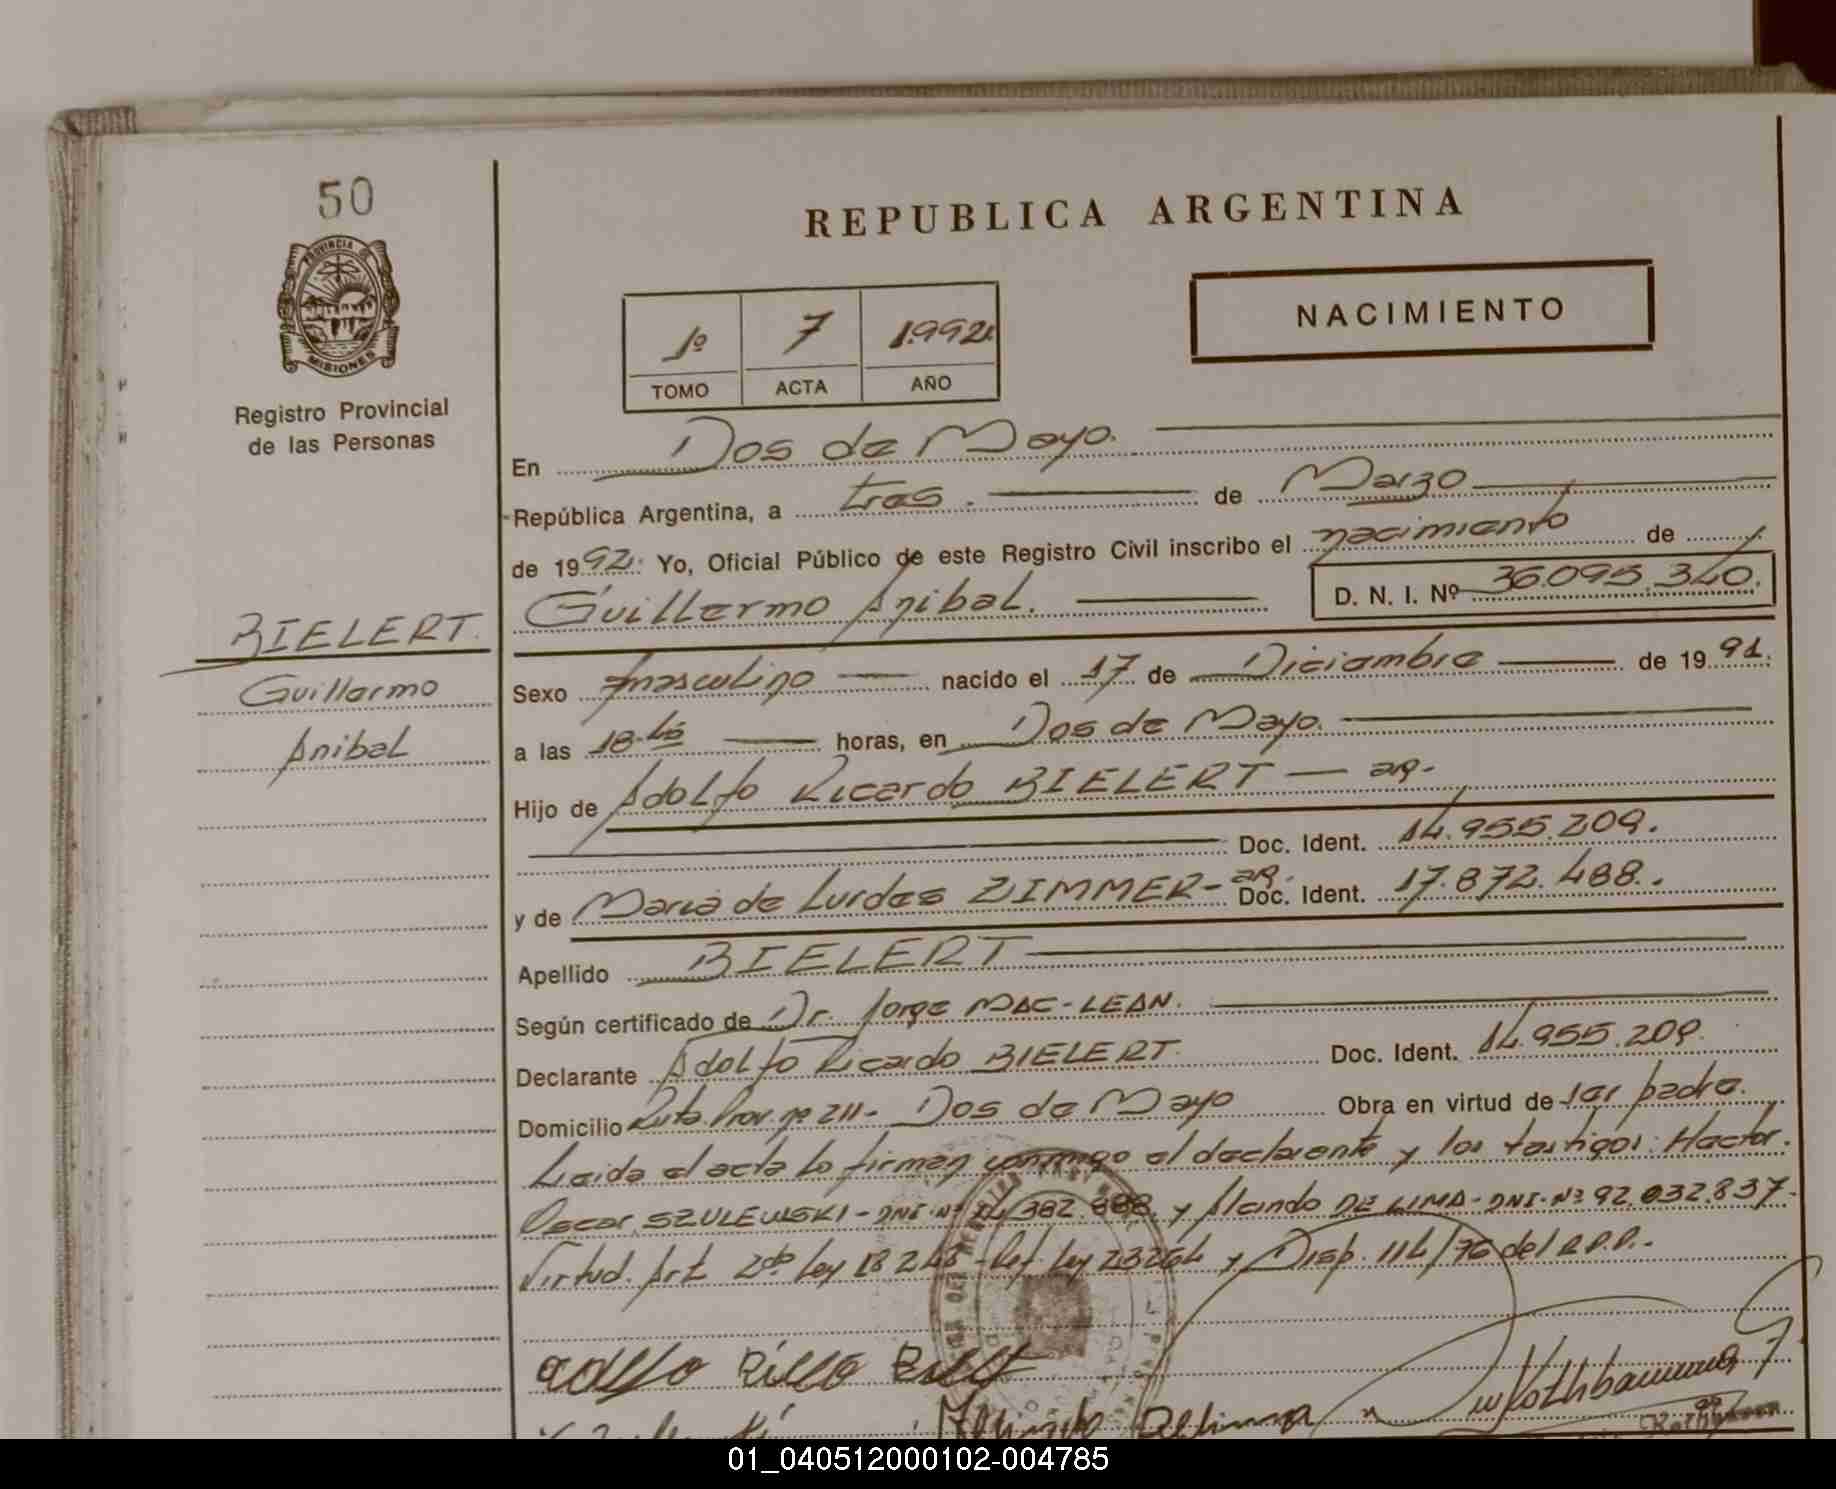 50
PROVINCIA DE
MISIONES
Registro Provincial
de las Personas
REPUBLICA ARGENTINA
NACIMIENTO
1º 7 1.992.
TOMO ACTA AÑO
En Dos de Mayo.
República Argentina, a tres. de Marzo
de 1992. Yo, Oficial Público de este Registro Civil inscribo el nacimiento de
Guillermo Anibal. D. N. I. Nº 36.095.340.
BIELERT.
Guillermo
Anibal
Sexo masculino nacido el 17 de Diciembre de 1991.
a las 18. horas, en Dos de Mayo.
Hijo de Adolfo Ricardo BIELERT - arg-
Doc. Ident. 14.955.209.
y de Maria de Lurdes ZIMMER - arg. Doc. Ident. 17.872.488.
Apellido BIELERT
Según certificado de Dr. Jorge MAC-LEAN.
Declarante Adolfo Ricardo BIELERT. Doc. Ident. 14.955.209.
Domicilio Ruta Prov. nº 211- Dos de Mayo Obra en virtud de ser padre.
Leida el acta lo firman conmigo el declarante y los testigos: Hector.
Oscar SZULEWSKI - DNI. Nº 14.382.888 y Alcindo DE LIMA - DNI. Nº 92.032.837-
Virtud. Art. 2do Ley 18248 - Ref. Ley 23264 y Disp. 114/76 del R.P.P.-
01_040512000102-004785